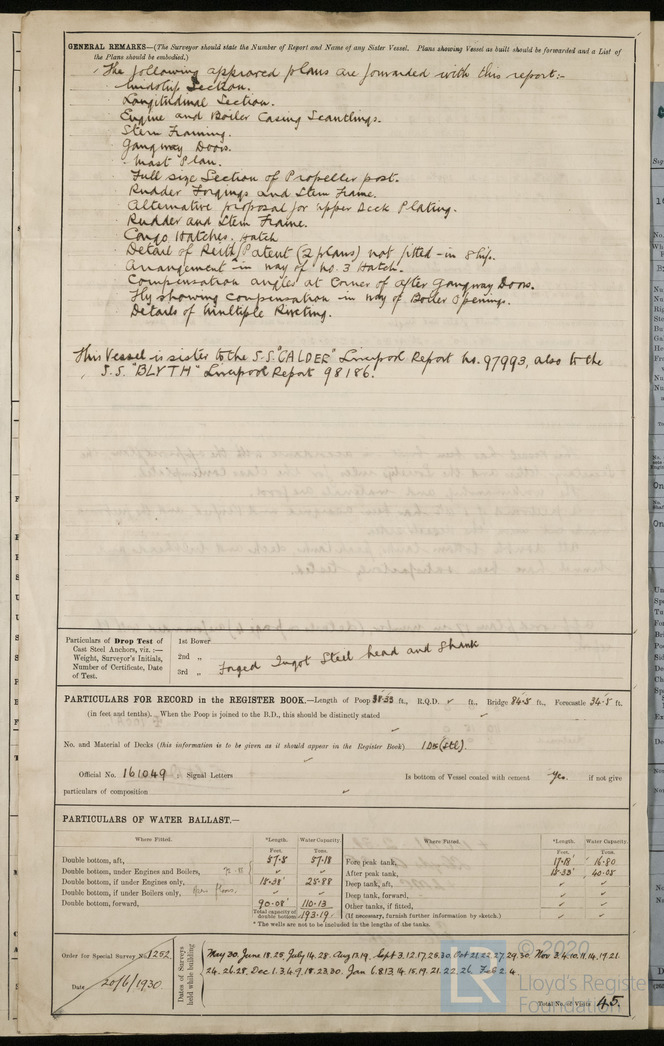 GENERAL REMARKS—(The Surveyor should state the Number of Report and Name of any Sister Vessel. Plans showing Vessel as built should be forwarded and a List of
the Plans should be embodied.)
The following approved plans are forwarded with this report:-
Midship Section.
Longitudinal Section.
Engine and Boiler Casing Scantlings.
Stern Framing.
Gangway Doors.
Mast Plan.
Full size Section of Propeller post.
Rudder Forgings and Stem Frame.
Alternative proposal for upper Deck Plating.
Rudder and Stem Frame.
Cargo Hatches. Hatch
Detail of Patent (2 plans) not fitted in Ship.
Arrangement in way of No. 3 Hatch.
Compensation angles at Corner of after Gangway Doors.
showing compensation in way of Boiler Openings.
Details of Multiple Riveting.
This Vessel is sister to the S.S. "CALDER" Liverpool Report No. 97993, also to the
S.S. "BLYTH" Liverpool Report 98186.
Particulars of Drop Test of
Cast Steel Anchors, viz. :—
Weight, Surveyor's Initials,
Number of Certificate, Date
of Test.
1st Bower
2nd „
3rd „
Forged Ingot Steel head and Shank
PARTICULARS FOR RECORD in the REGISTER BOOK.—Length of Poop 38.33 ft., R.Q.D. ✓ ft., Bridge 84.5 ft., Forecastle 34.5 ft.
(in feet and tenths). When the Poop is joined to the B.D., this should be distinctly stated
No. and Material of Decks (this information is to be given as it should appear in the Register Book) 1 Dk (stl).
Official No. 161049 ; Signal Letters Is bottom of Vessel coated with cement Yes. if not give
particulars of composition ✓
PARTICULARS OF WATER BALLAST.—
Where Fitted. *Length. Water Capacity. Where Fitted. *Length. Water Capacity.
Feet. Tons. Feet. Tons.
Double bottom, aft, 57.5 57.18 Fore peak tank, 17.18' 16.80
Double bottom, under Engines and Boilers, ✓ ✓ After peak tank, 18.33' 40.05
Double bottom, if under Engines only, 18.38' 25.88 Deep tank, aft, ✓ ✓
Double bottom, if under Boilers only, Open floors. ✓ ✓ Deep tank, forward, ✓ ✓
Double bottom, forward, 90.08' 110.13 Other tanks, if fitted, ✓ ✓
Total capacity of double bottom 193.19 (If necessary, furnish further information by sketch.)
* The wells are not to be included in the lengths of the tanks.
Order for Special Survey No. 1252
Date 20/6/1930
Dates of Surveys held while building
May 30. June 18.25. July 14.28. Aug 13.19. Sept 3.12.17.25.30. Oct 21.22.27.29.30. Nov 3.4.10.11.14.19.21.
24.26.28. Dec 1.3.4.9.18.23.30. Jan 6.8.13.14.15.19.21.22.26. Feb 2.4.
Total No. of Visits 45.
© 2020
Lloyd's Register
Foundation
LR